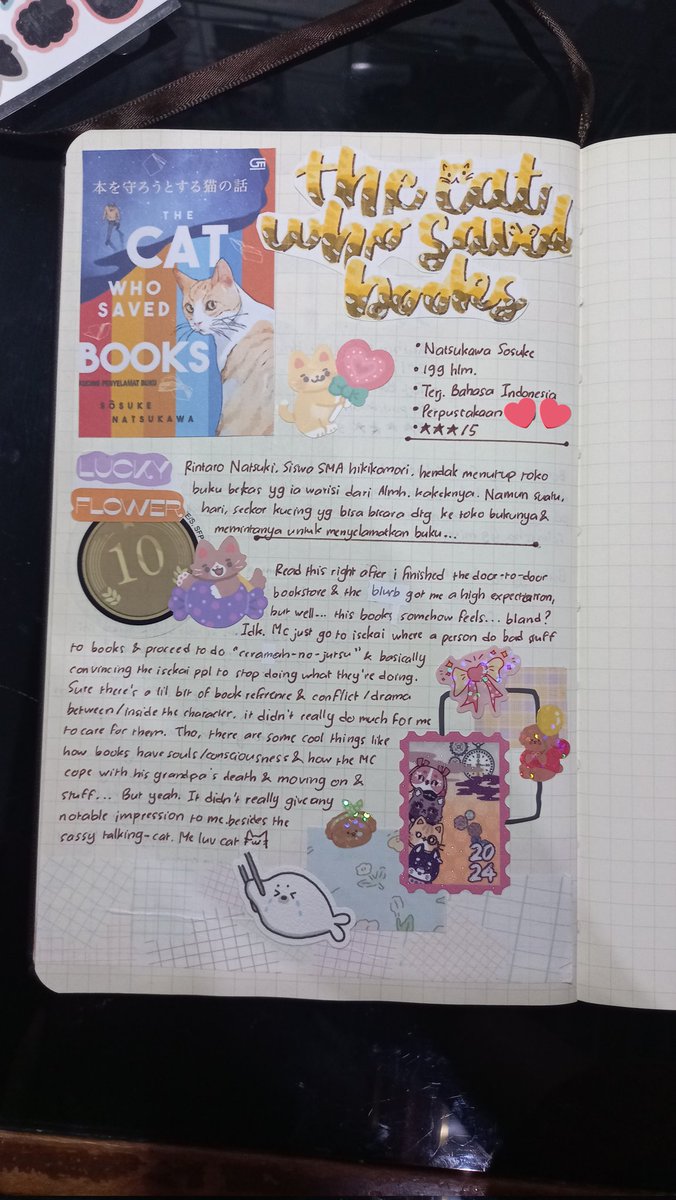 GM
本を守ろうとする猫の話
THE
CAT
WHO
SAVED
BOOKS
KUCING PENYELAMAT BUKU
SŌSUKE
NATSUKAWA
the cat
who saved
books
• Natsukawa Sosuke
• 199 hlm.
• Terj. Bahasa Indonesia
• Perpustakaan
• ★★★/5
LUCKY
FLOWER
10
Rintaro Natsuki, siswa SMA hikikomori, hendak menutup toko
buku bekas yg ia warisi dari Almh. kakeknya. Namun suatu,
hari, seekor kucing yg bisa bicara dtg ke toko bukunya &
memintanya untuk menyelamatkan buku...
Read this right after i finished the door-to-door
bookstore & the blurb got me a high expectation,
but well... this books somehow feels... bland?
Idk. MC just go to isekai where a person do bad stuff
to books & proceed to do "ceramah-no-jutsu" & basically
convincing the isekai ppl to stop doing what they're doing.
Sure there's a lil bit of book reference & conflict/drama
between/inside the character, it didn't really do much for me
to care for them. Tho, there are some cool things like
how books have souls/consciousness & how the MC
cope with his grandpa's death & moving on &
stuff... But yeah. It didn't really give any
notable impression to me besides the
sassy talking-cat. Me luv cat
20
24